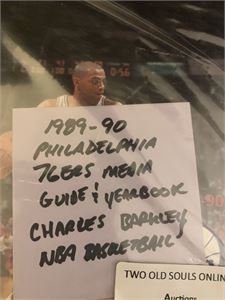 0:56
1989-90
PHILADELPHIA
76ERS MEDIA
GUIDE & YEARBOOK
CHARLES BARKLEY
NBA BASKETBALL
TWO OLD SOULS ONLIN
Auctions